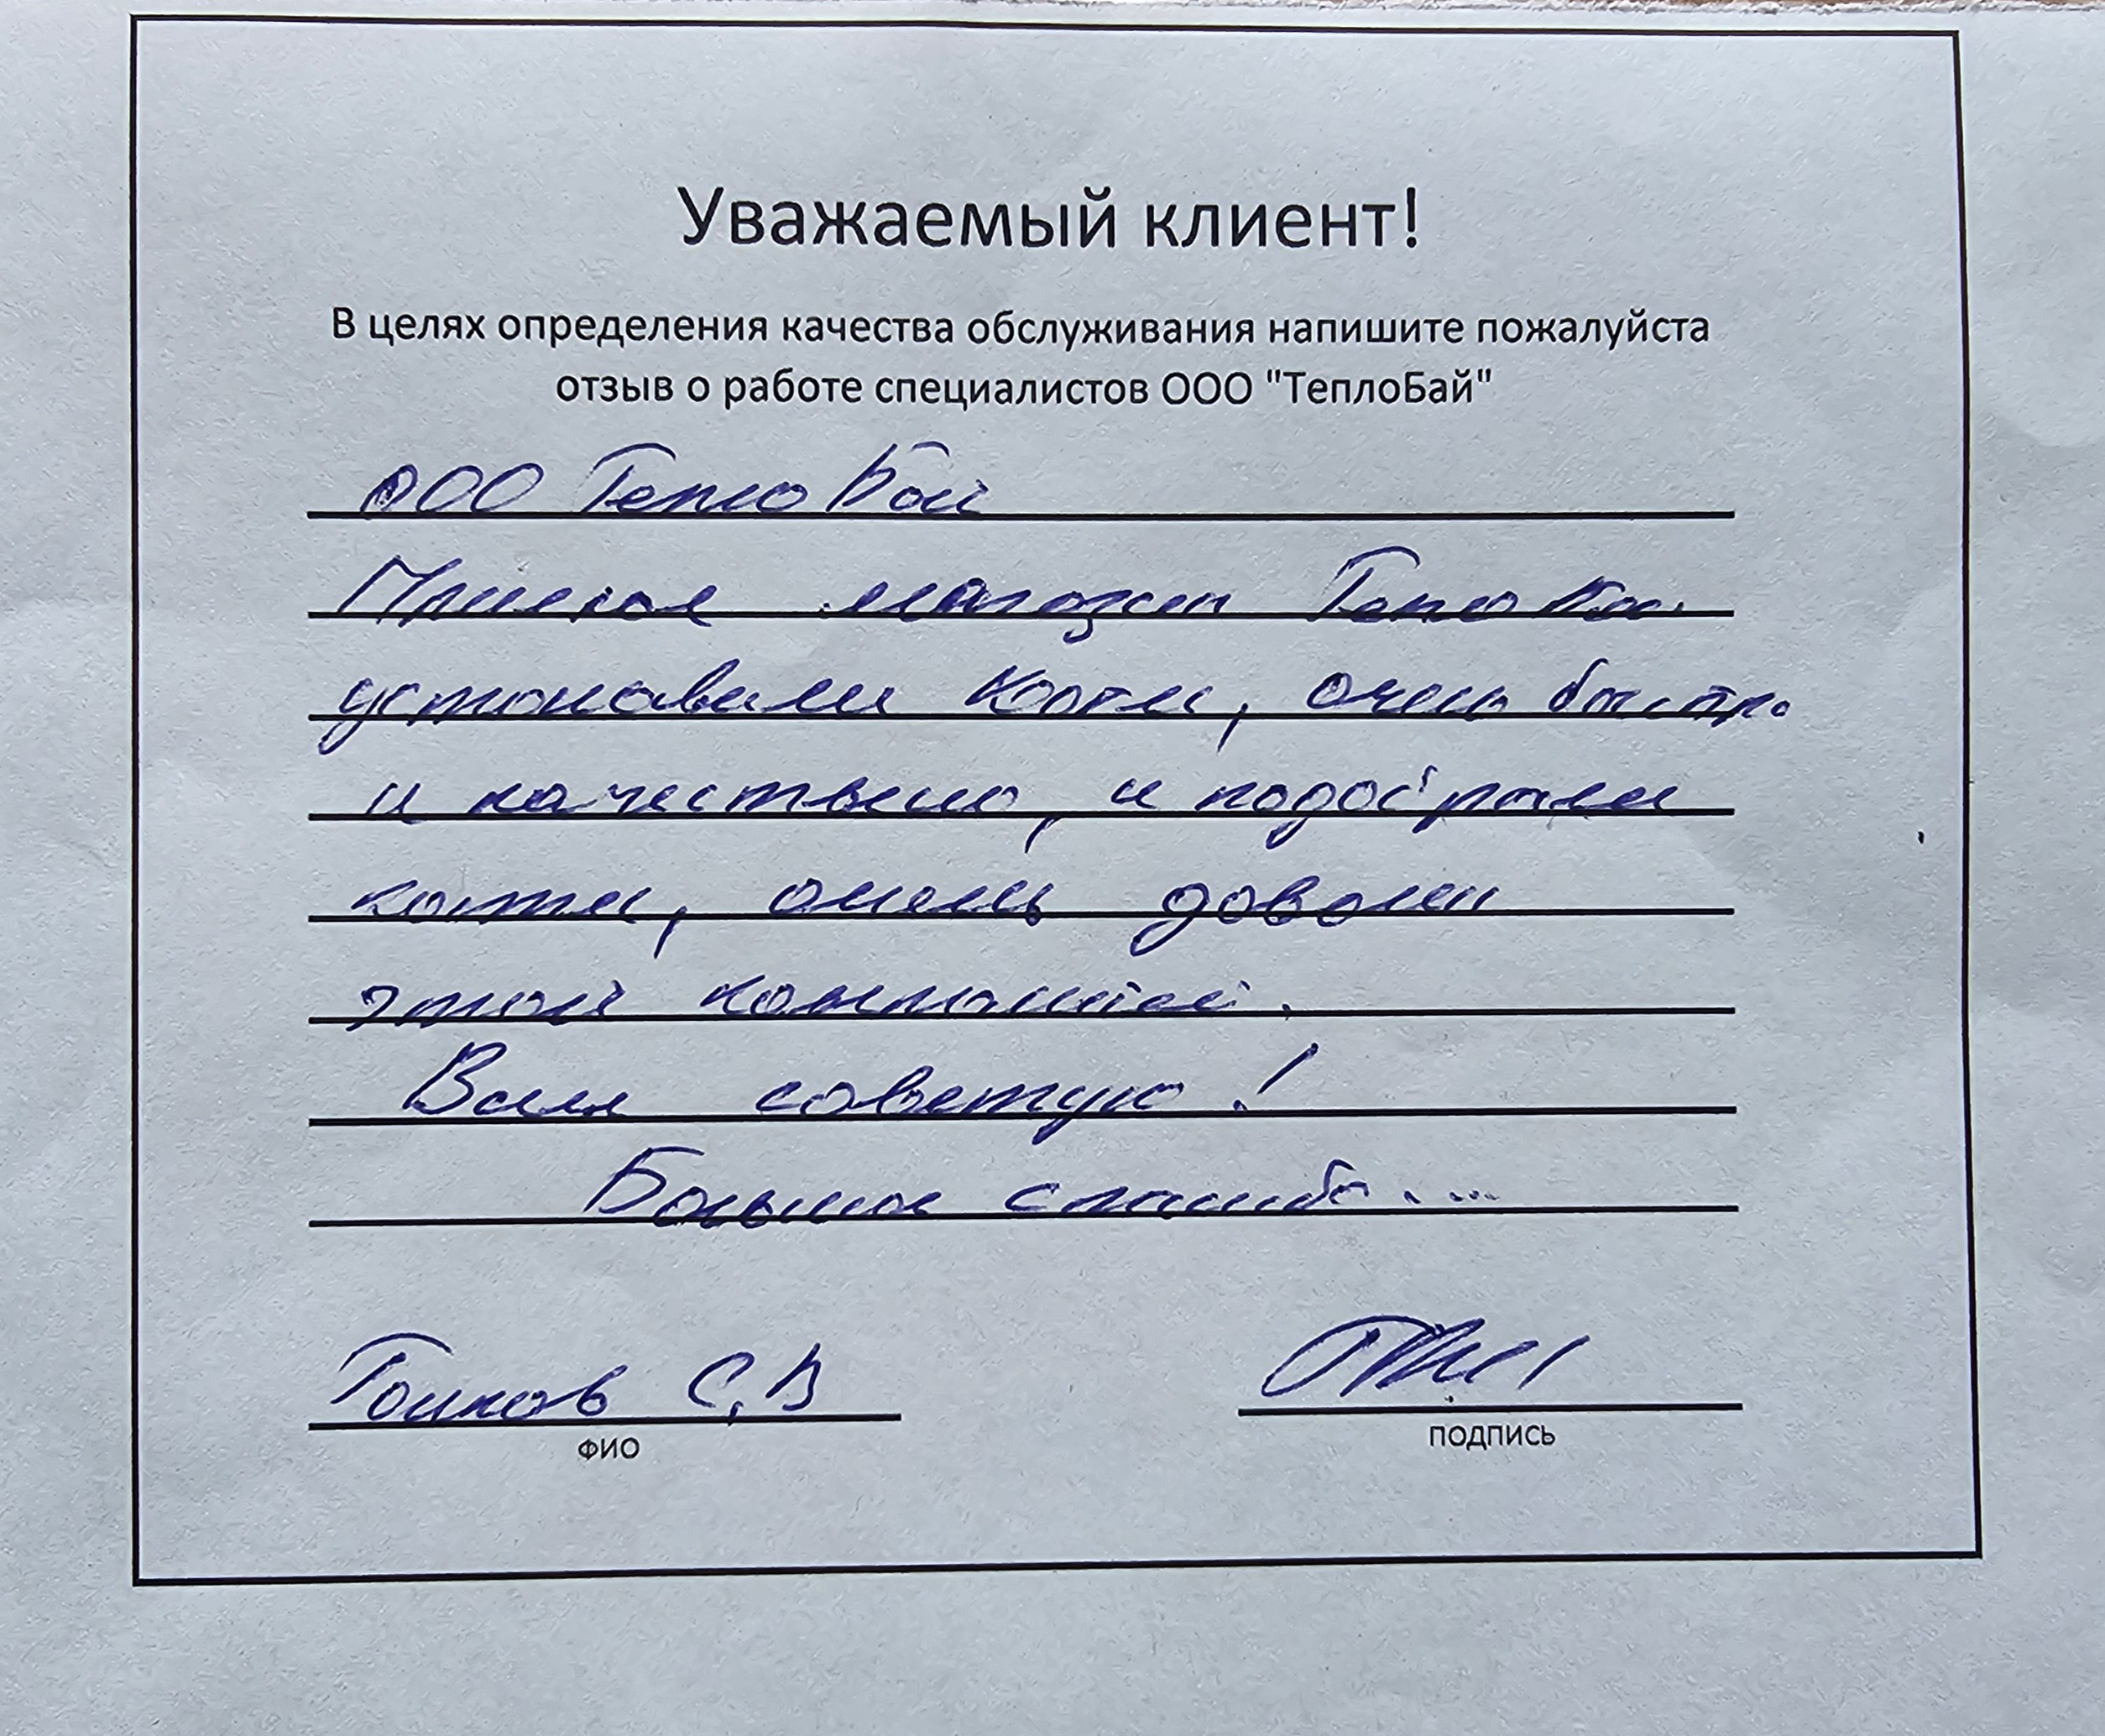 Уважаемый клиент!
В целях определения качества обслуживания напишите пожалуйста
отзыв о работе специалистов ООО "ТеплоБай"
ООО ТеплоБай
магазин ТеплоБай
установили котел, очень быстро
и качествено, и подобрали
котел, очень доволен
этой компанией.
Всем советую!
Большое спасибо....
С,В
ФИО
ПОДПИСЬ